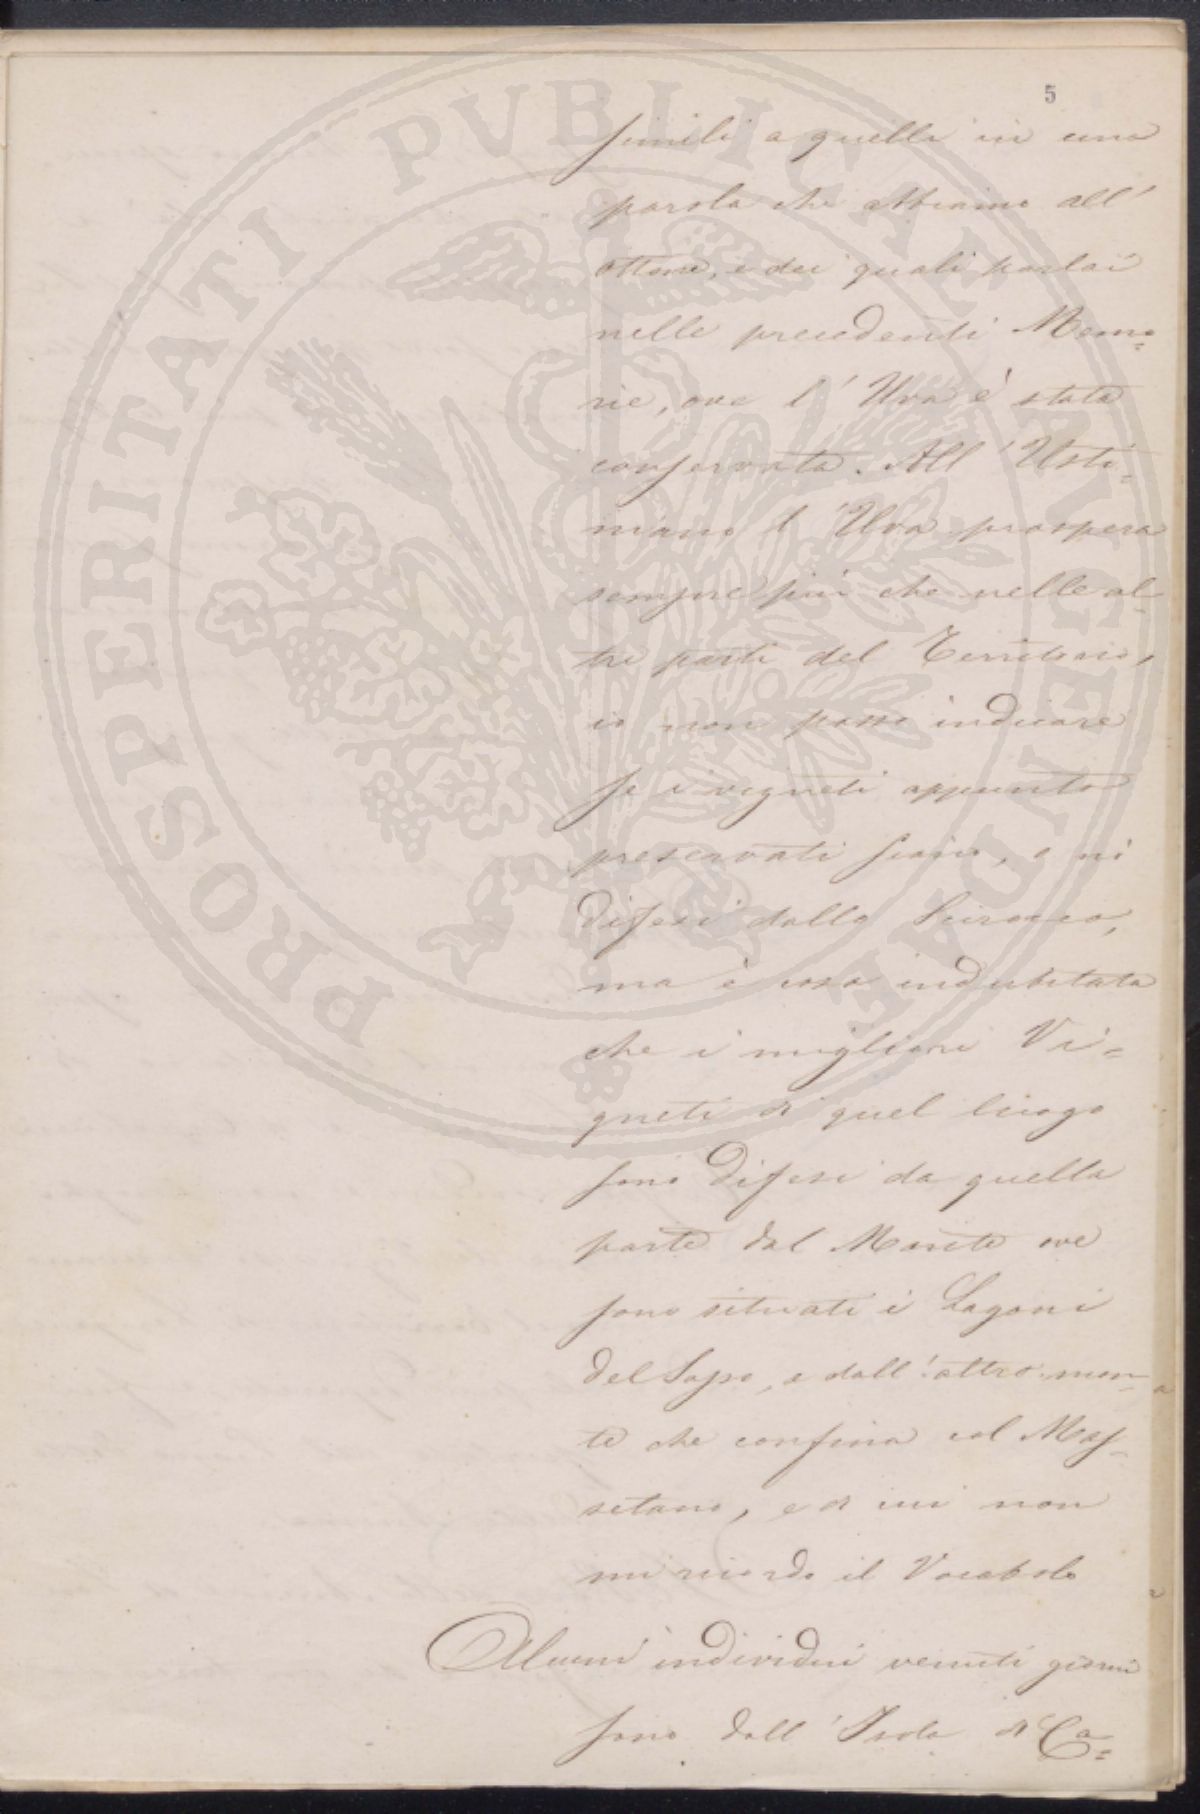 5
simili a quelli in una
parola che abbiamo all'
ottone, e dei quali parlai
nelle precedenti Memo=
rie, ove l'Uva è stata
conservata. All'Usti=
niano l'Uva prospera
sempre più che nelle al=
tre parti del Territorio,
io non posso indicare
se i vigneti appunto
preservati siano, o nò
difesi dallo Scirocco,
ma è cosa indubitata
che i migliori Vi=
gneti di quel luogo
sono difesi da quella
parte dal Monte ove
sono situati i Lagoni
del Sasso, e dall'altro mon=
te che confina col Mas=
setano, e di cui non
mi ricordo il Vocabolo
Alcuni individui venuti giorni
sono dall'Isola di Ca=
PROSPERITATI PVBLICAE AVGENDAE